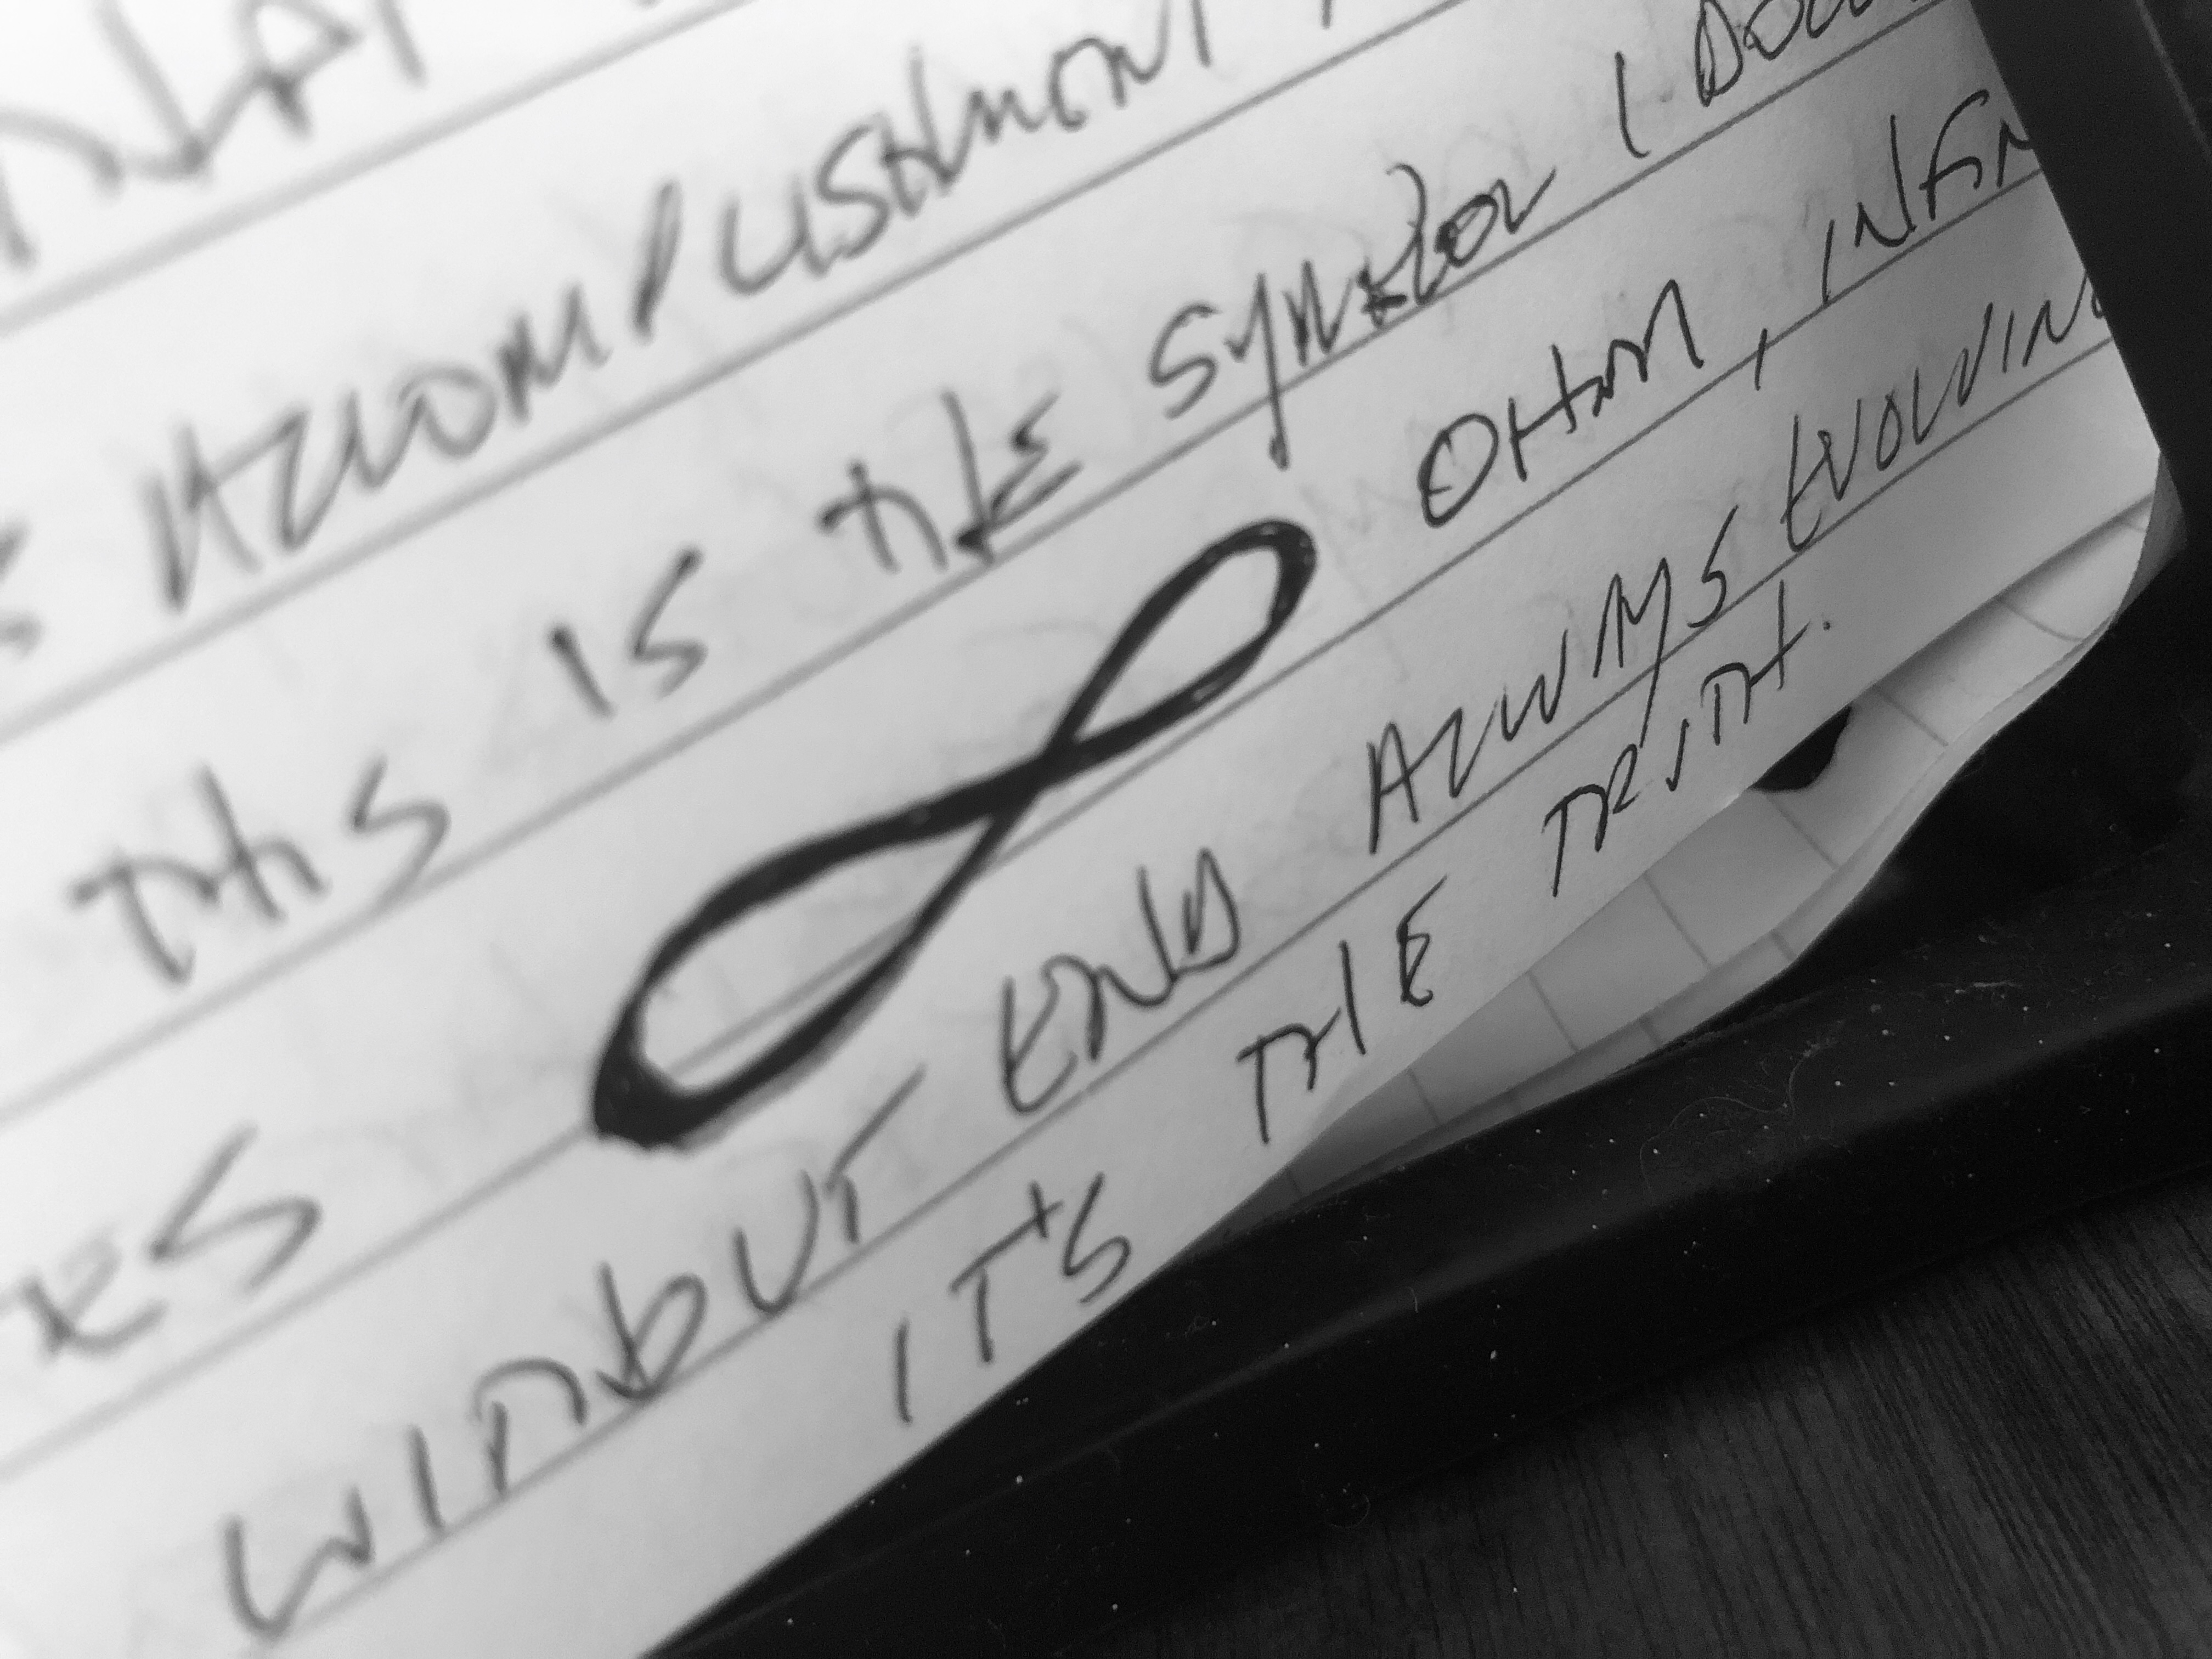 ACCOMPLISHMENT
THIS IS THE SYMBOL I
∞ OHM, INFIN
WITHOUT END ALWAYS EVOLVING
IT'S THE TRUTH.